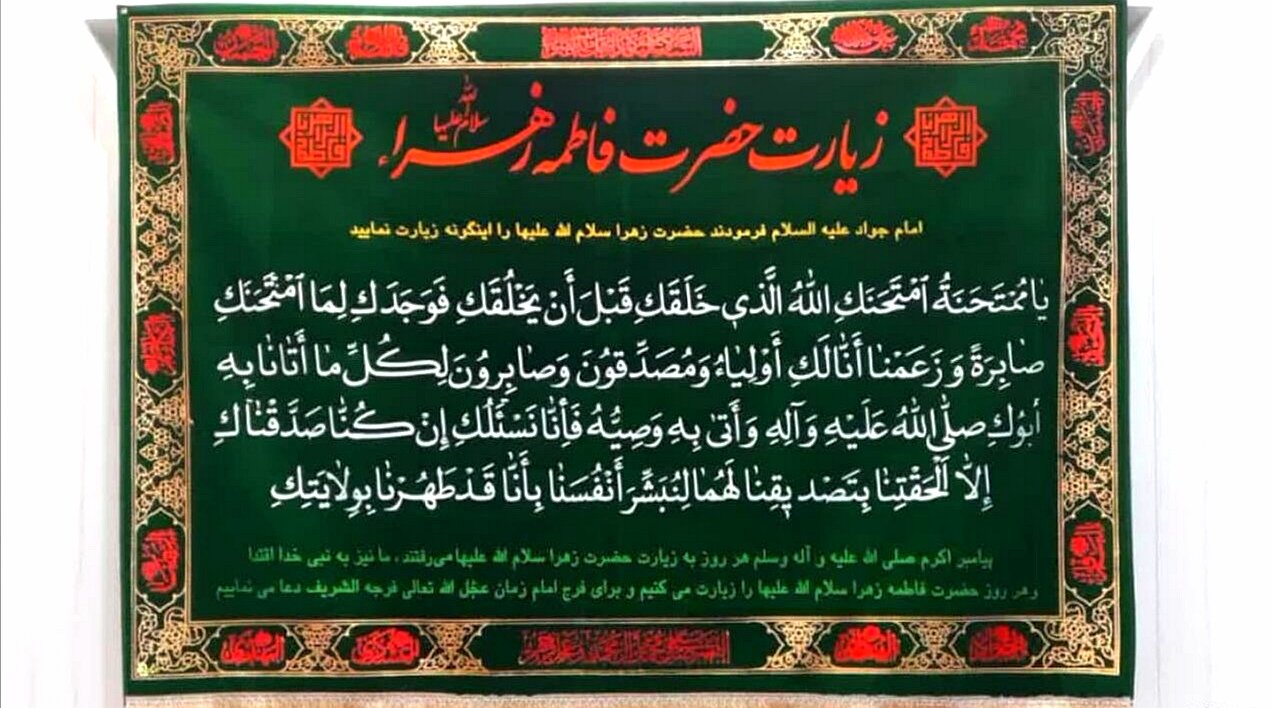 زیارت حضرت فاطمه زهراء سلام الله علیها
امام جواد علیه السلام فرمودند حضرت زهرا سلام الله علیها را اینگونه زیارت نمایید
يَا مُمْتَحَنَةُ ٱمْتَحَنَكِ اللّٰهُ الَّذي خَلَقَكِ قَبْلَ أَنْ يَخْلُقَكِ فَوَجَدَكِ لِمَا ٱمْتَحَنَكِ
صٰابِرَةً وَ زَعَمْنٰا أَنّٰا لَكِ أَوْلِيٰاءُ وَ مُصَدِّقُونَ وَ صٰابِرُونَ لِكُلِّ مٰا أَتٰانٰا بِهِ
أَبُوكِ صَلَّى اللّٰهُ عَلَيْهِ وَ آلِهِ وَ أَتىٰ بِهِ وَصِيُّهُ فَأِنّٰا نَسْئَلُكِ إِنْ كُنّٰا صَدَّقْنٰاكِ
إِلّٰا أَلْحَقْتِنٰا بِتَصْديقِنٰا لَهُمٰا لِنُبَشِّرَ أَنْفُسَنٰا بِأَنّٰا قَدْ طَهُرْنٰا بِوِلٰايَتِكِ
پیامبر اکرم صلی الله علیه و آله وسلم هر روز به زیارت حضرت زهرا سلام الله علیها می‌رفتند ، ما نیز به نبی خدا اقتدا
وهر روز حضرت فاطمه زهرا سلام الله علیها را زیارت می کنیم و برای فرج امام زمان عجّل الله تعالی فرجه الشریف دعا می نماییم